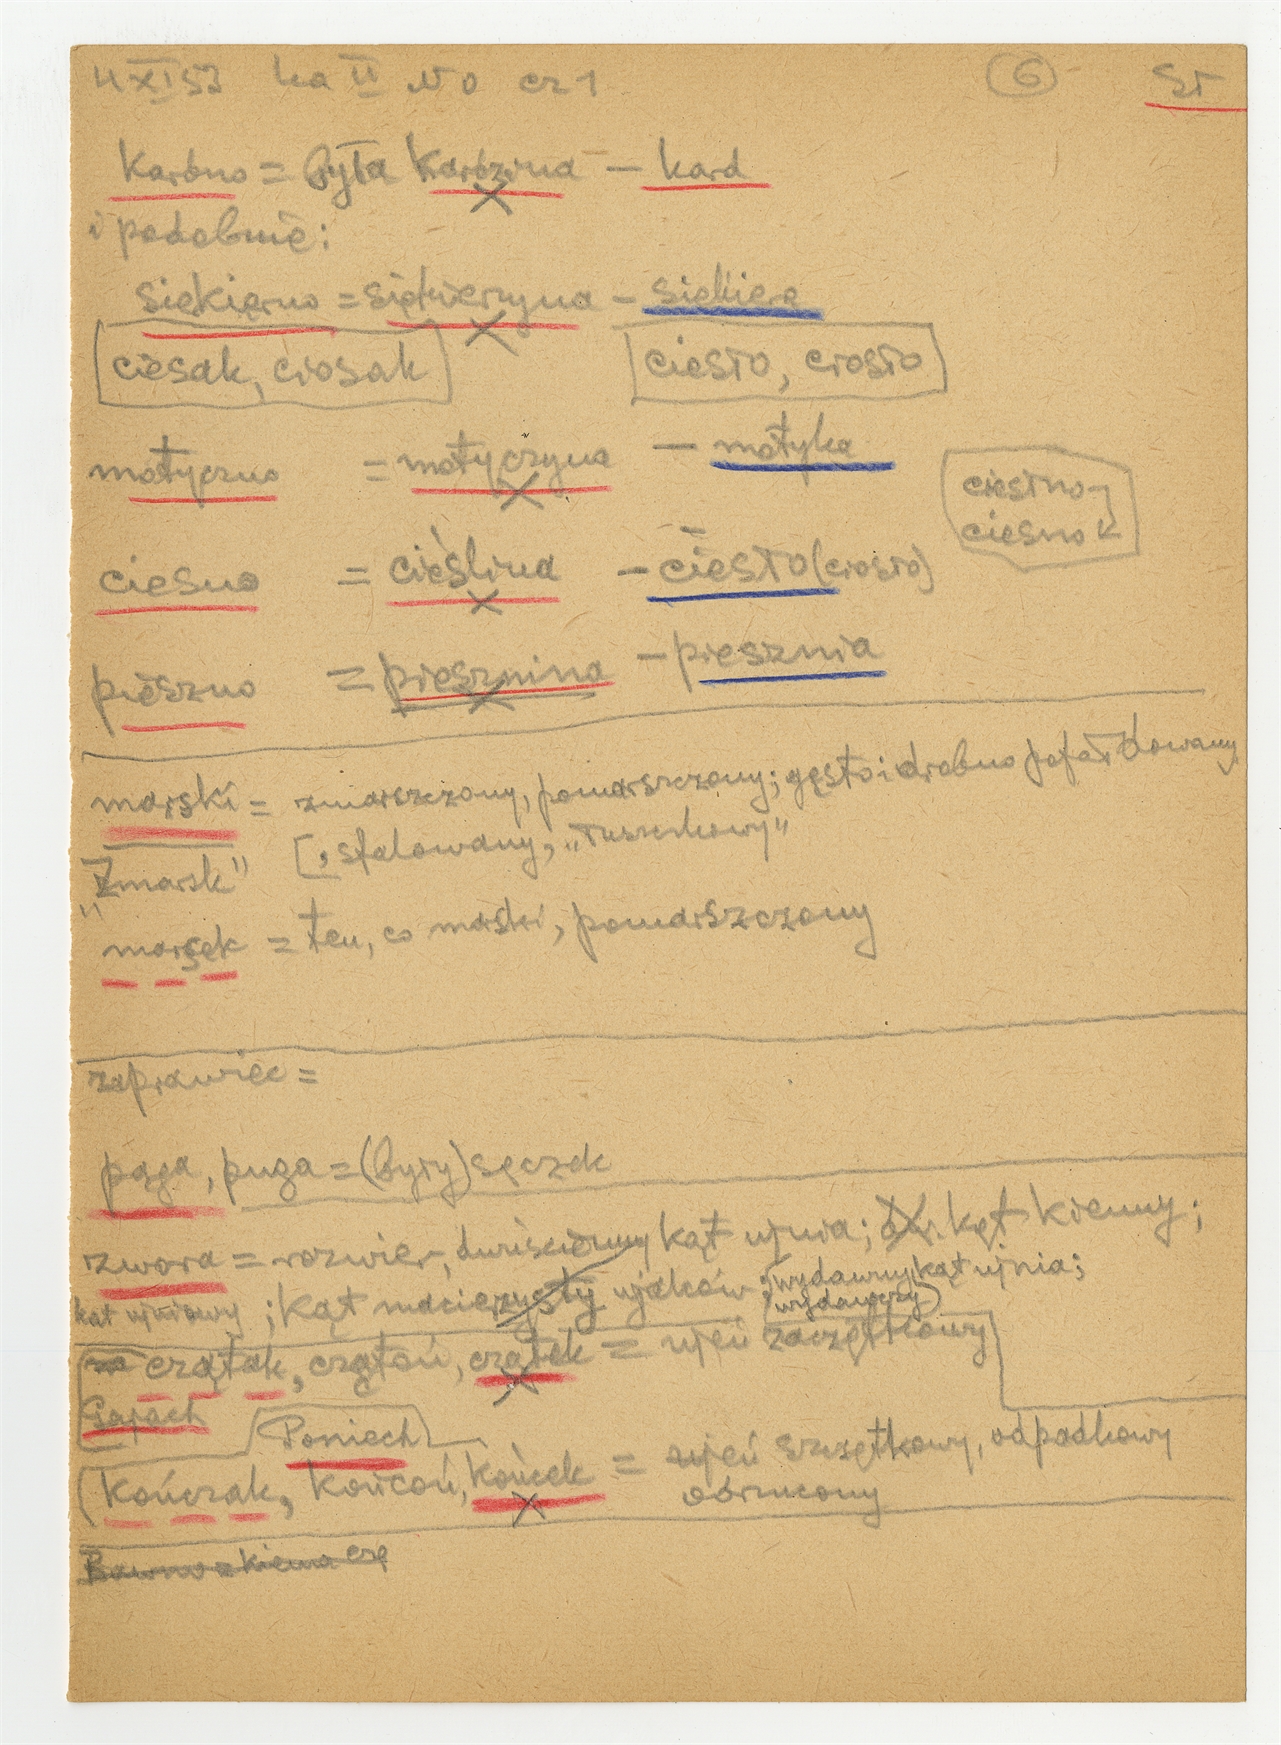 4 XI 53 ka II No cz 1 (6) ST
Kardno = byta Kardzina - kard
i podobnie:
siekierno = siekierzyna - siekiera
ciesak, ciosak ciesło, ciosło
motyczno = motyczyna - motyka
ciesłno
ciesno
ciesno = cieślina - ciesło (ciosło)
pieszno = piesznina - piesznia
marski = zmarszczony, pomarszczony; gęsto i drobno pofałdowany
"Zmarsk" [, sfalowany,
marsek = ten, co marski, pomarszczony
zaprawiec =
pąga, puga = (były) sęczek
zwora = rozwier, kąt ujnia; kąt kienny;
kąt ujniowy; kąt macierzysty ujalców; wydawny kąt ujnia;
(wydawczy)
czątak, czątoń, czątek = ujeń zaczętkowy
Gapach
Poniech
(kończak, kończoń, kończek = ujeń szczętkowy, odpadkowy
odrzucony